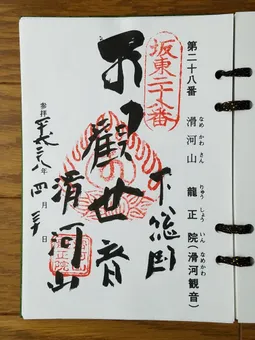 第二十八番 滑河山 龍正院(滑河観音)
なめ かわ さん りゅう しょう いん なめかわ
坂東二十八番
下総国
観世音
滑河山
参拝 平成二八年 四月 日